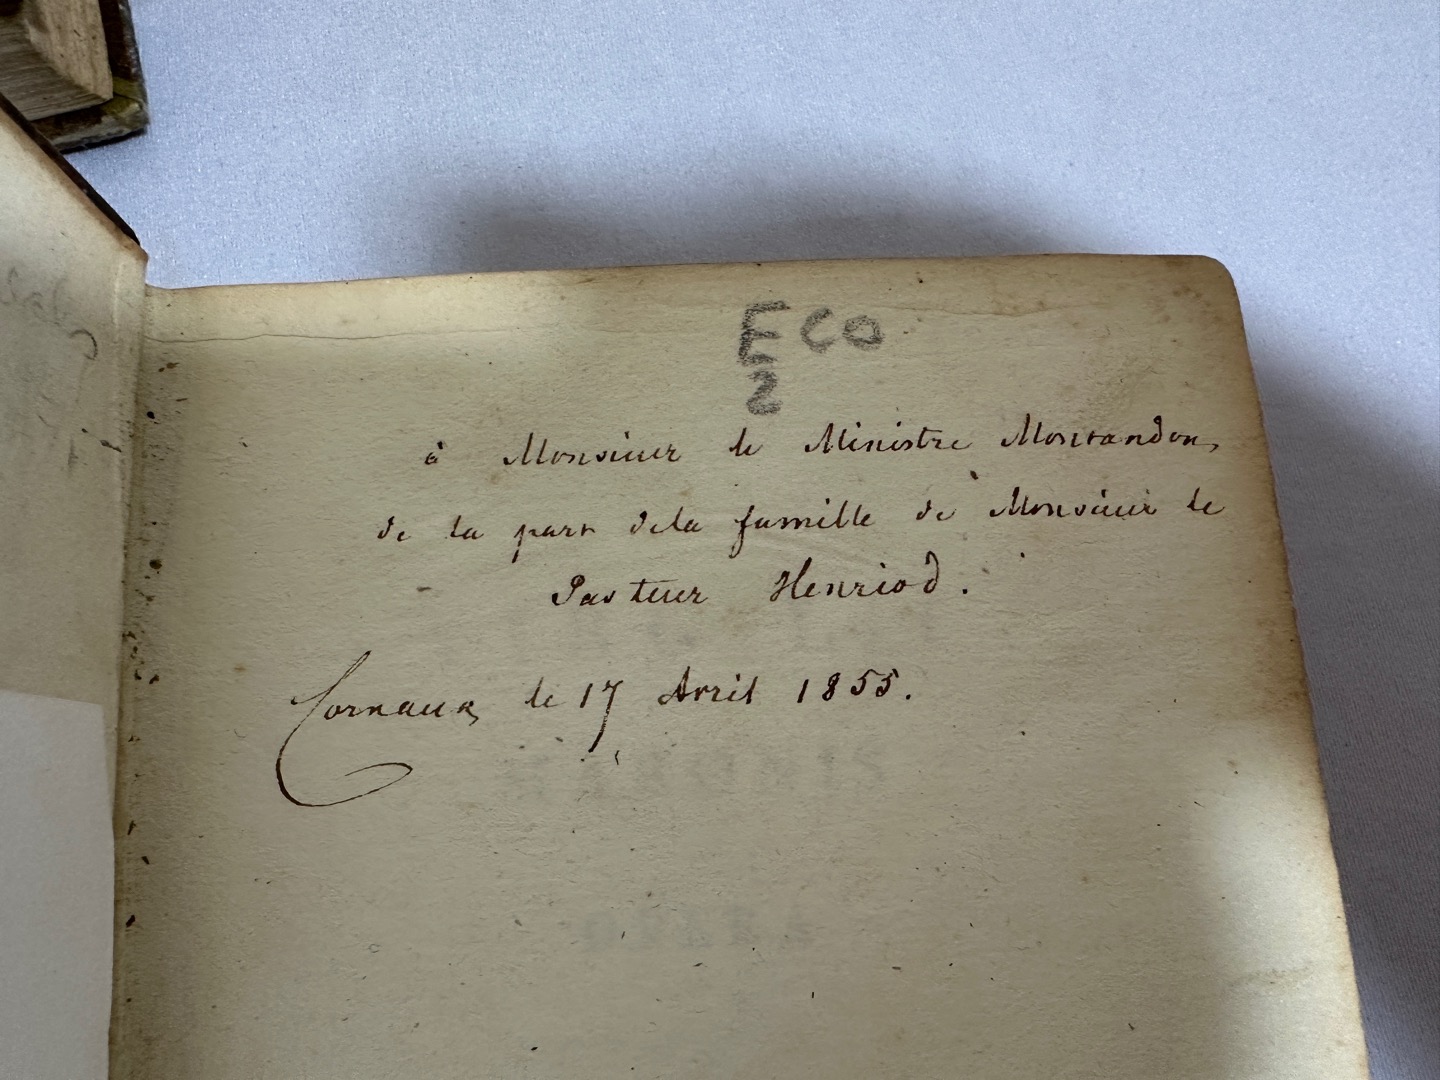 ECO
2
à Monsieur le Ministre Montandon,
de la part dela famille de Monsieur le
Pasteur Henriod.
Cornaux le 17 Avril 1855.